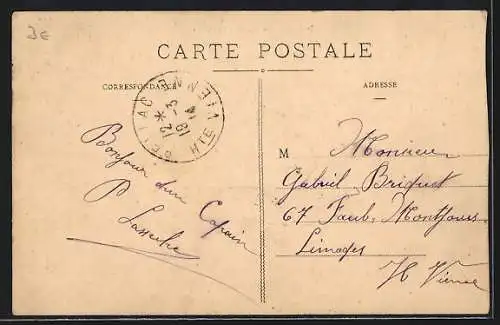 3€
CARTE POSTALE
CORRESPONDANCE
ADRESSE
BELLAC
12 *
18 - 3
14
HTE VIENNE
Bonjour d'un Copain
P
M Monsieur
Gabriel Briquet
67 Faub. Montjovis
Limoges
Hte Vienne